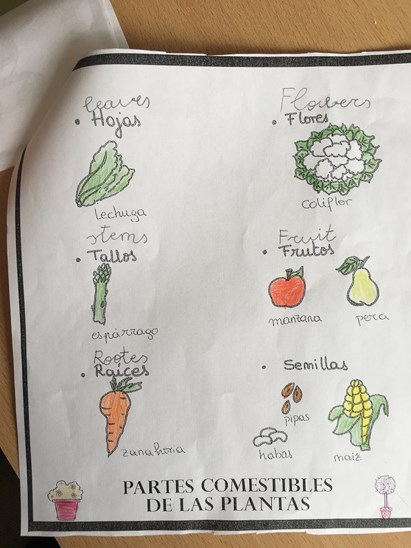 leaves
• Hojas
lechuga
stems
• Tallos
espárrago
Rootes
• Raíces
zanahoria
Flowers
• Flores
coliflor
Fruit
• Frutos
manzana
pera
• Semillas
pipas
habas
maiz
PARTES COMESTIBLES
DE LAS PLANTAS